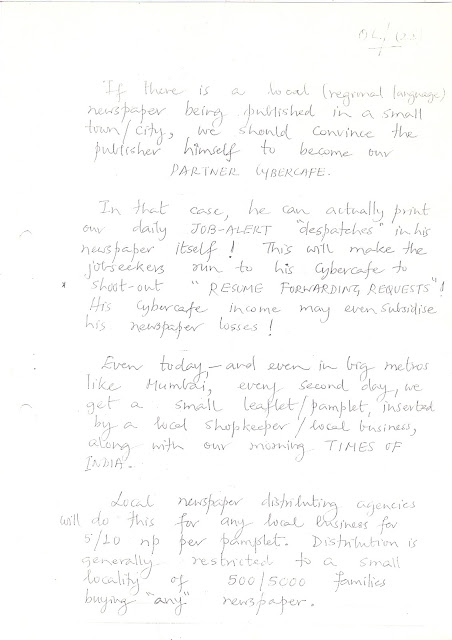 If there is a local (regional language)
newspaper being published in a small
town/city, we should convince the
publisher himself to become our
PARTNER CYBERCAFE.
In that case, he can actually print
our daily JOB-ALERT "despatches" in his
newspaper itself! This will make the
jobseekers run to his cybercafe to
shoot-out "RESUME FORWARDING REQUESTS"!
His cybercafe income may even subsidise
his newspaper losses!
Even today - and even in big metros
like Mumbai, every second day, we
get a small leaflet/pamplet, inserted
by a local shopkeeper/local business,
along with our morning TIMES OF
INDIA.
Local newspaper distributing agencies
will do this for any local business for
5/10 np per pamplet. Distribution is
generally restricted to a small
locality of 500/5000 families
buying "any" newspaper.